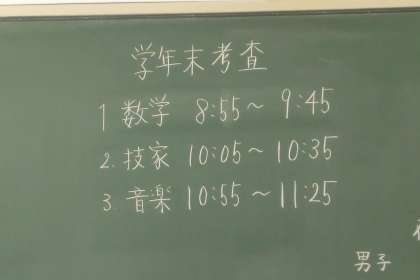 学年末考査
1 数学 8:55～ 9:45
2. 技家 10:05～ 10:35
3. 音楽 10:55 ～11:25
男子